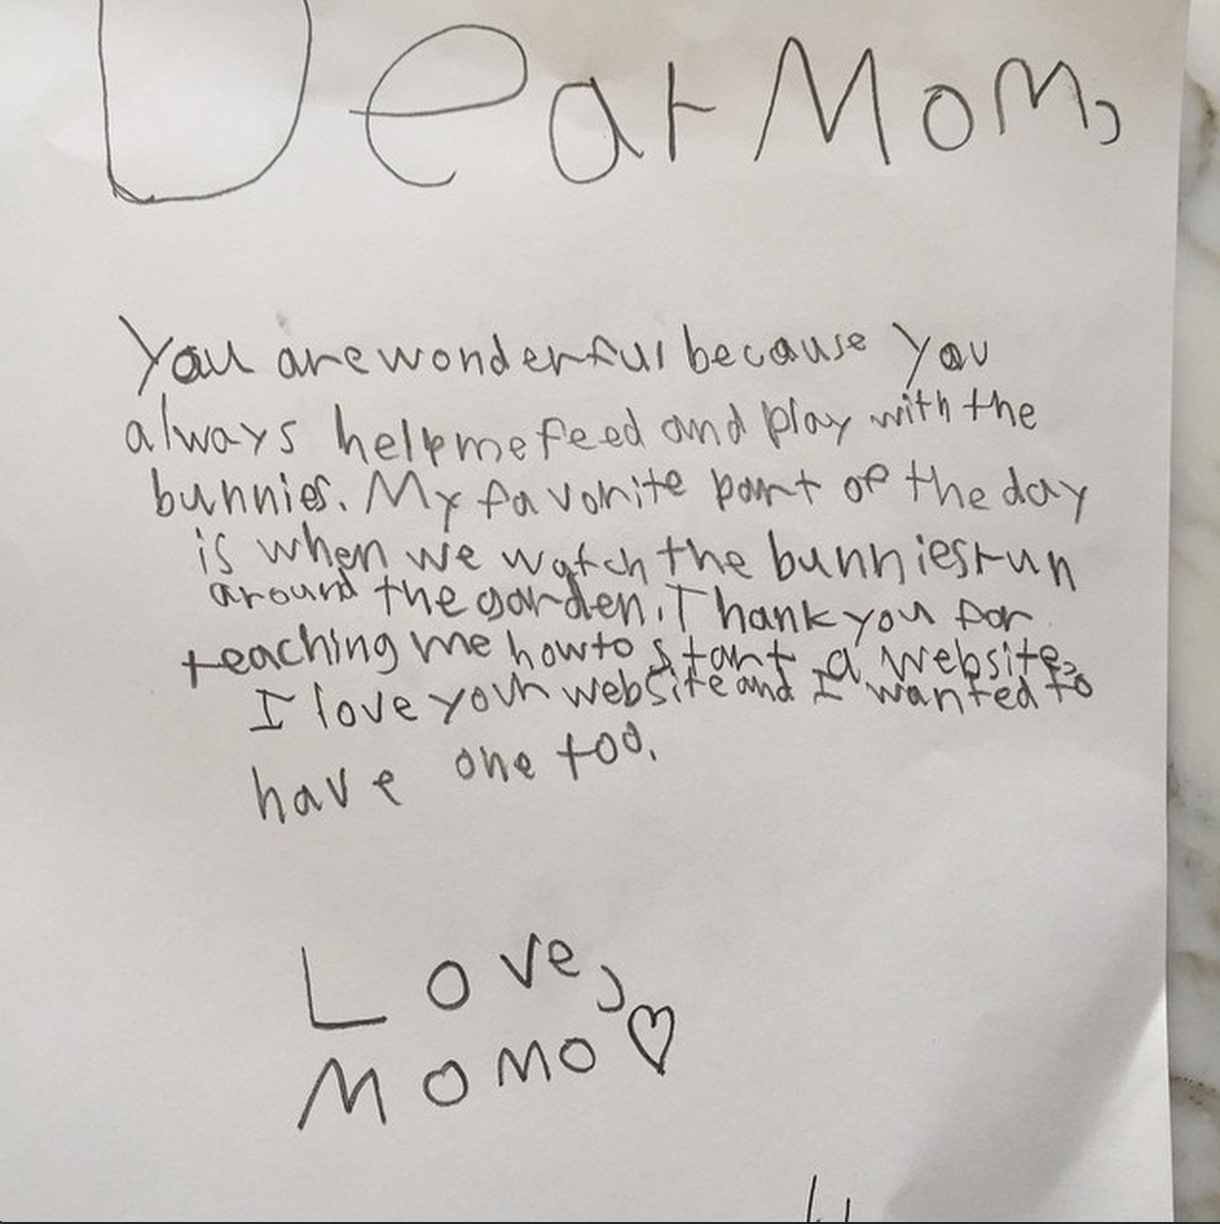 Dear Mom,
You are wonderful because you
always help me feed and play with the
bunnies. My favorite part of the day
is when we watch the bunnies run
around the garden. Thank you for
teaching me how to start a website,
I love your website and I wanted to
have one too.
Love,
MOMO♡